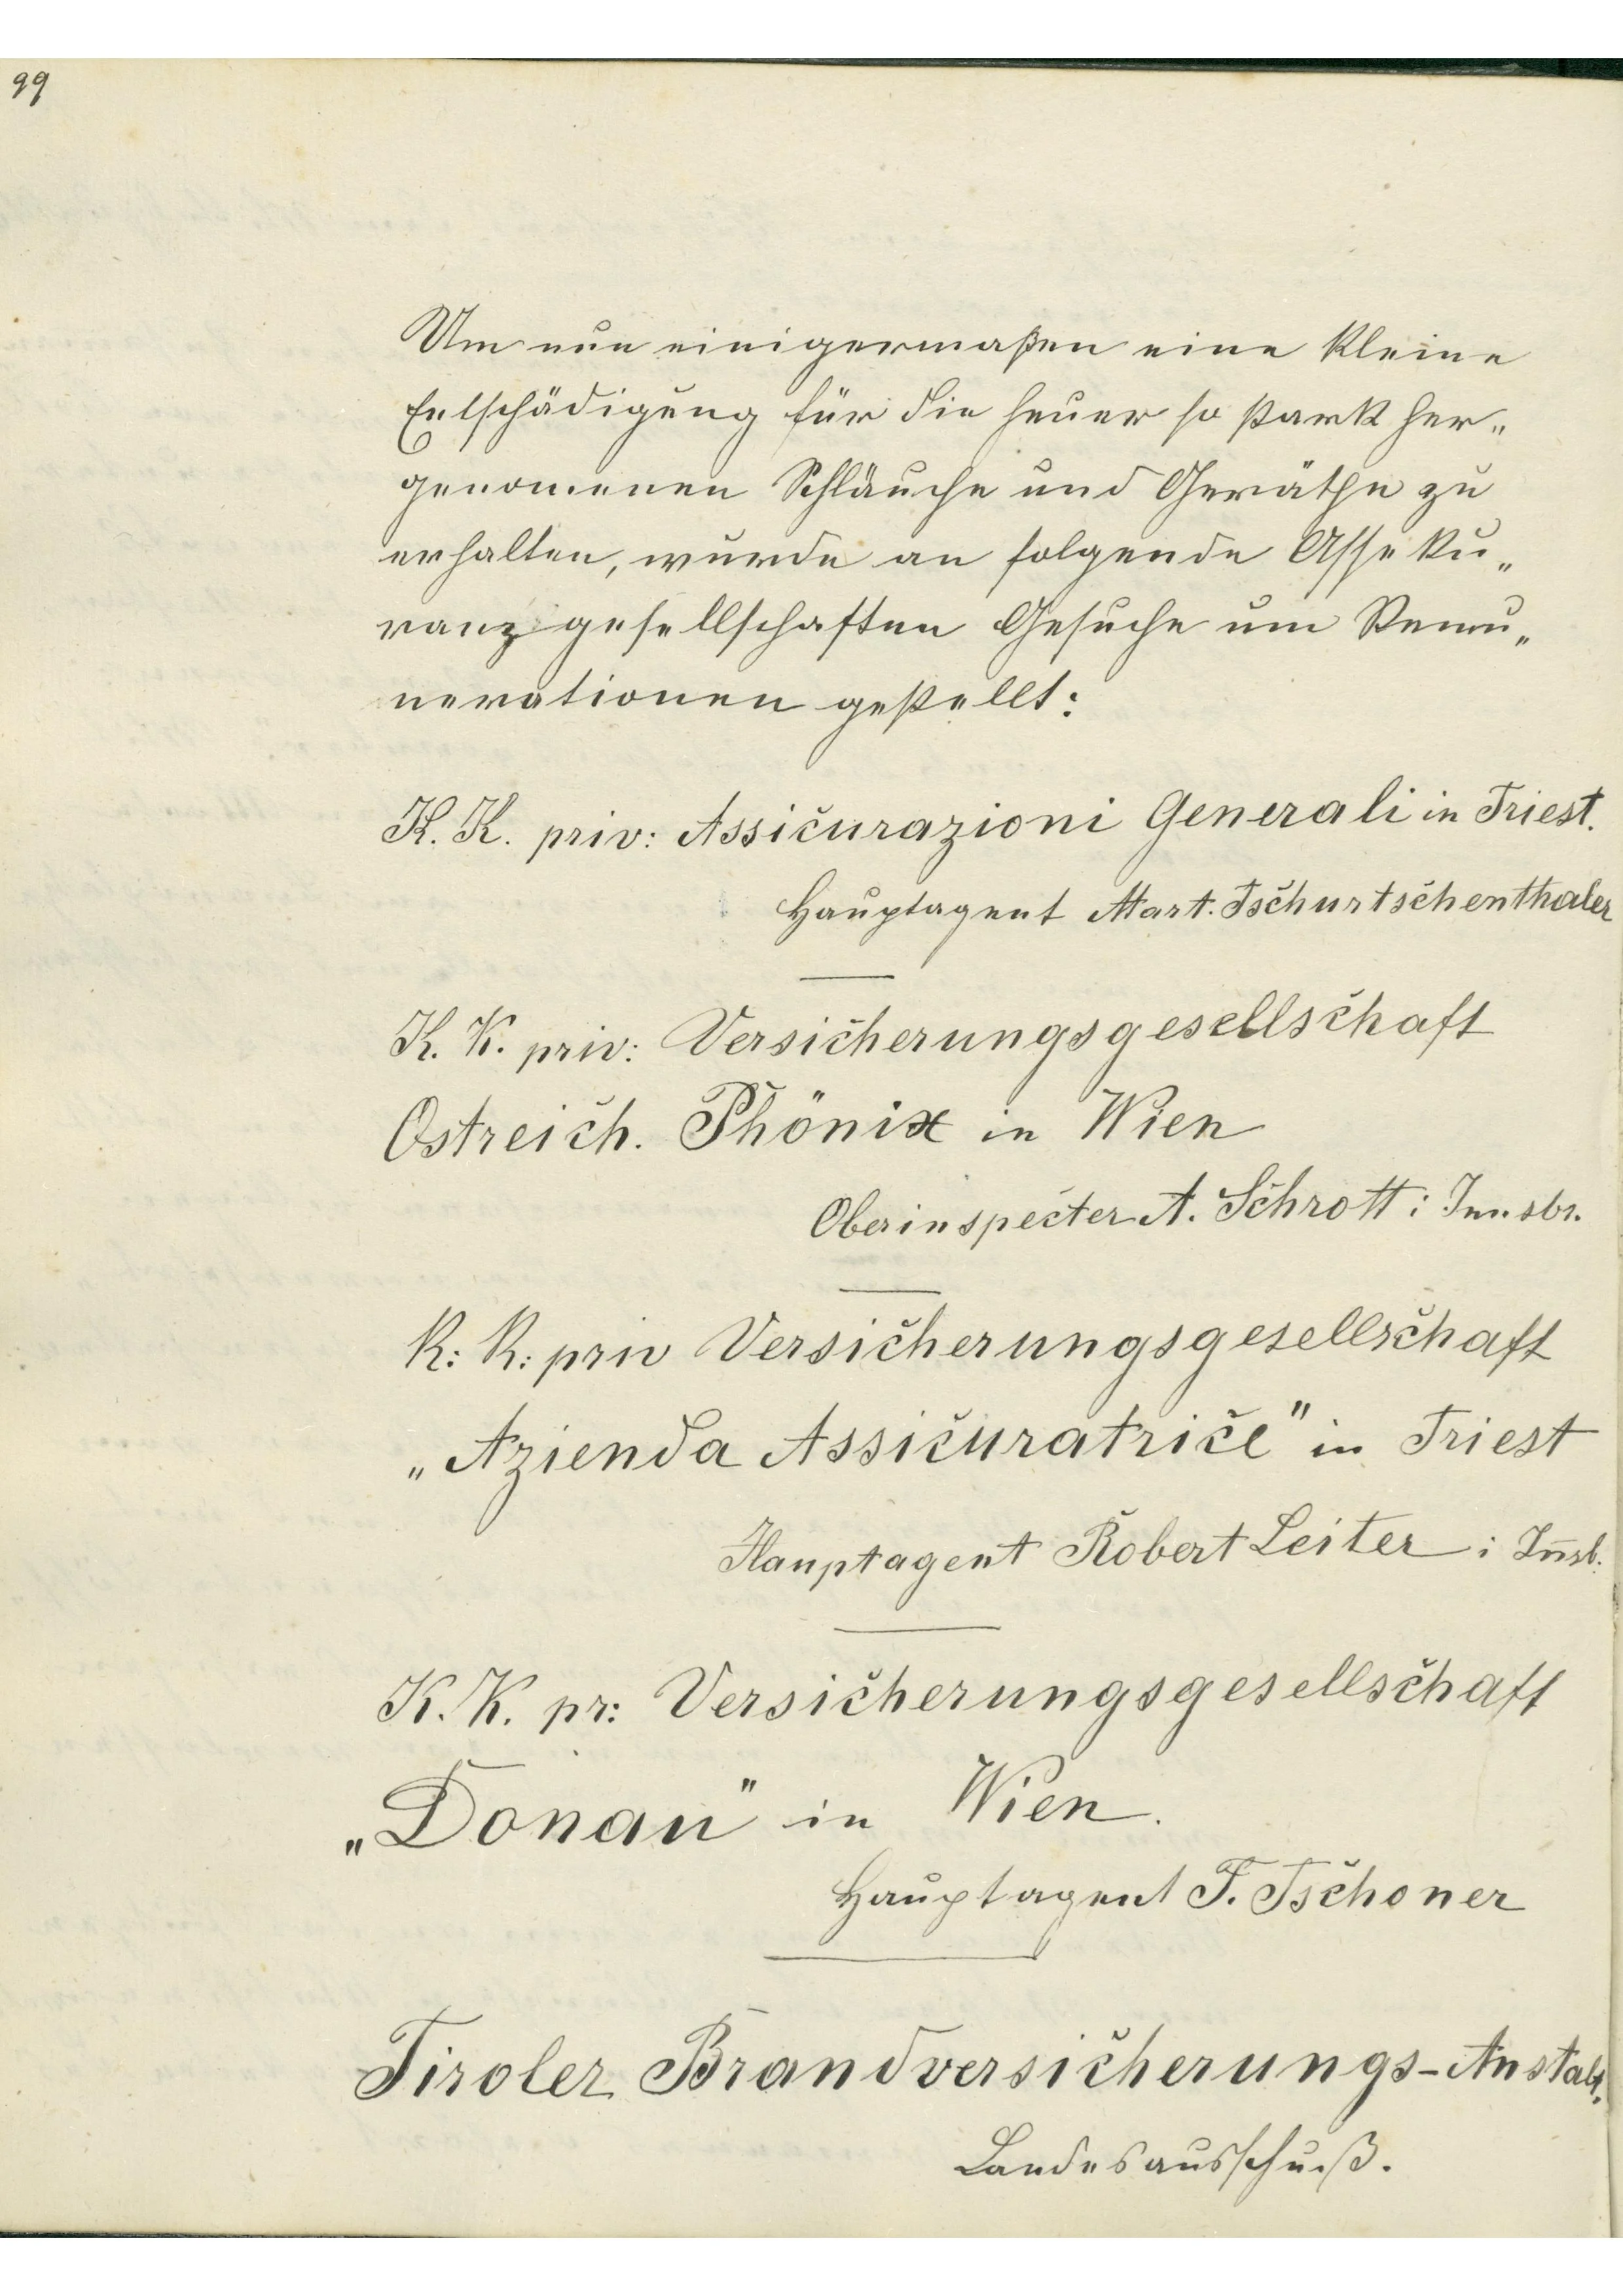 99
Um nun einigermaßen eine kleine
Entschädigung für die heuer so stark her„
genommenen Schläuche und Geräthe zu
erhalten, wurde an folgende Asseku„
ranzgesellschaften Gesuche um Remu„
nerationen gestellt:
K. K. priv: Assicurazioni Generali in Triest.
Hauptagent Mart. Tschurtschenthaler
K. K. priv: Versicherungsgesellschaft
Ostreich. Phönix in Wien
Oberinspecter A. Schrott i Innsbr.
K: K: priv Versicherungsgesellschaft
„Azienda Assicuratrice" in Triest
Hauptagent Robert Leiter i Iñsb.
K. K. pr: Versicherungsgesellschaft
„Donau" in Wien.
Hauptagent F. Tschoner
Tiroler Brandversicherungs-Anstalt,
Landesausschuß.